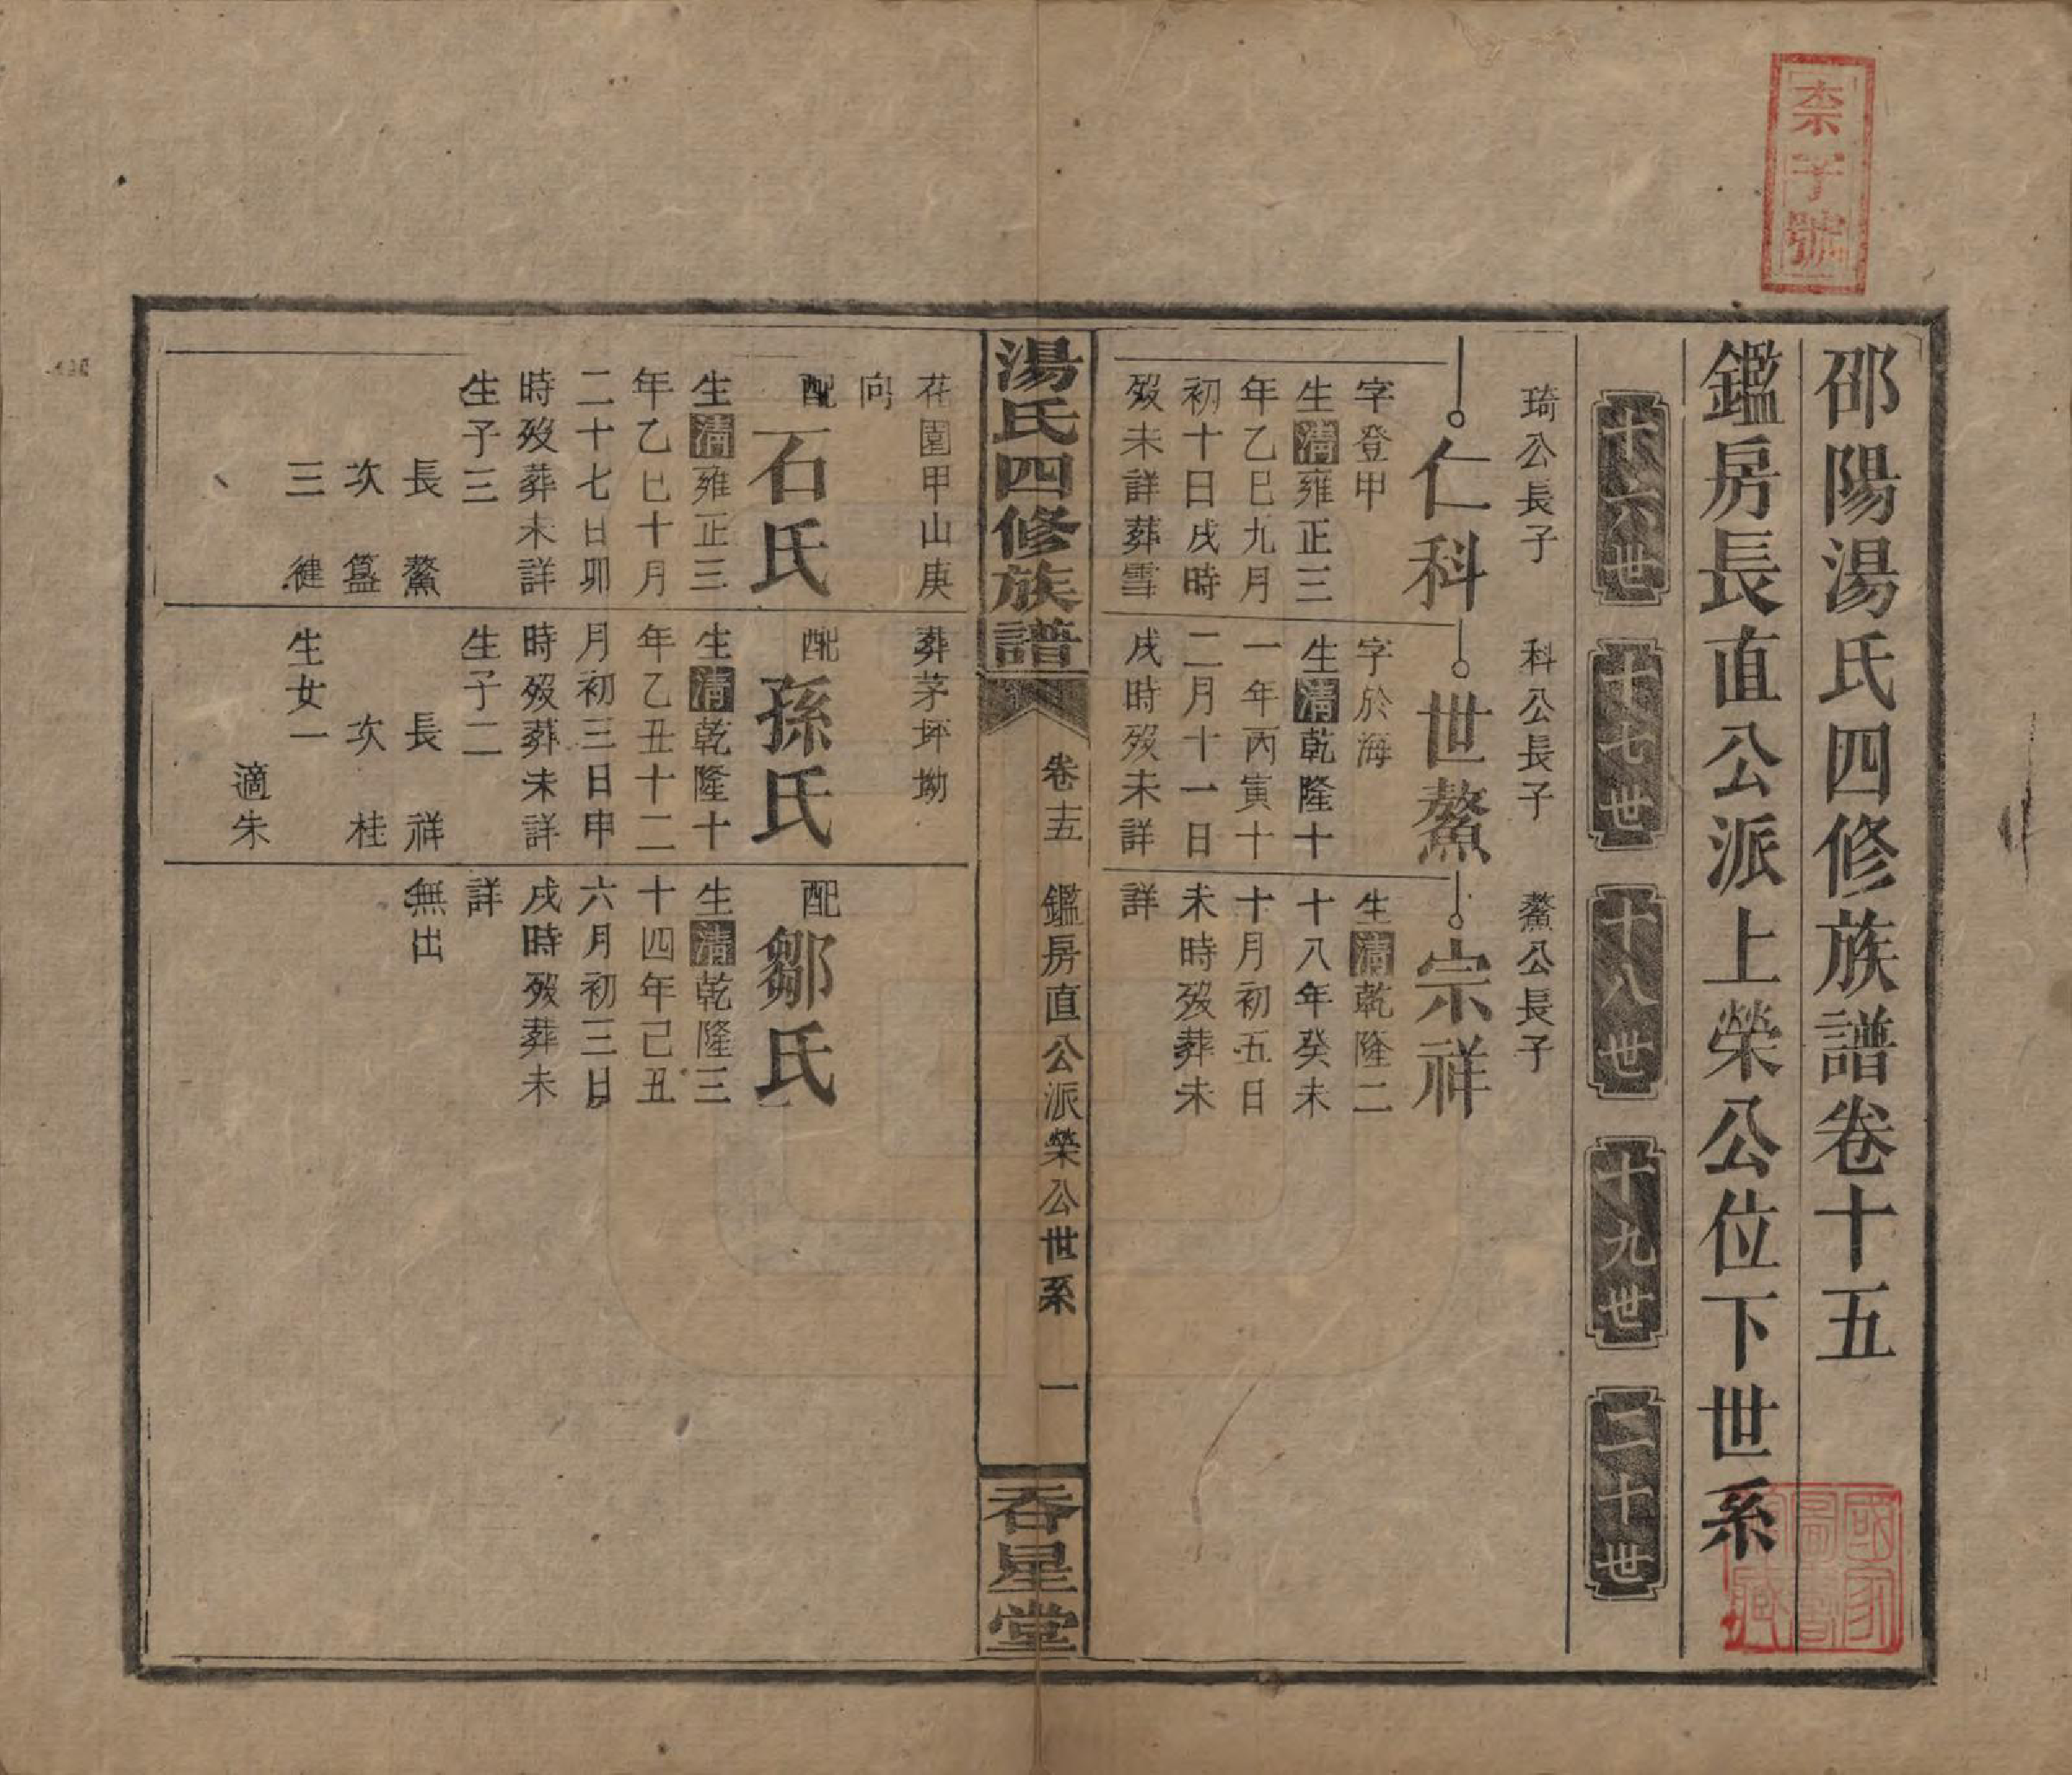 柰字號
邵陽湯氏四修族譜卷十五
鑑房長直公派上榮公位下世系
十六世
十七世
十八世
十九世
二十世
琦公長子
仁科
字登甲
生清雍正三
年乙巳九月
初十日戌時
歿未詳葬雪
花園甲山庚
向
配
石氏
生清雍正三
年乙巳十月
二十七日卯
時歿葬未詳
生子三
長 鰲
次 簋
三 健
科公長子
世鰲
字於海
生清乾隆十
一年丙寅十
二月十一日
戌時歿未詳
葬茅坪坳
配
孫氏
生清乾隆十
年乙丑十二
月初三日申
時歿葬未詳
生子二
長 祥
次 桂
生女一
適朱
鰲公長子
宗祥
生清乾隆二
十八年癸未
十月初五日
未時歿葬未
詳
配
鄒氏
生清乾隆三
十四年己丑
六月初三日
戌時歿葬未
詳
無出
湯氏四修族譜
卷十五
鑑房直公派榮公世系
一
吞星堂
國家圖書館藏